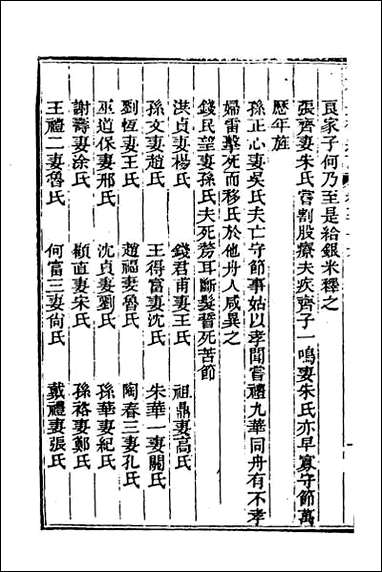 良家子何乃至是給銀米釋之
張齊妻朱氏嘗割股療夫疾齊子一鳴妻朱氏亦早寡守節萬
歷年旌
孫正心妻吳氏夫亡守節事姑以孝聞嘗禮九華同舟有不孝
婦雷擊死而移氏於他舟人咸異之
錢民望妻孫氏夫死剺耳斷髮誓死苦節
洪貞妻楊氏 錢君甫妻王氏 祖鼎妻高氏
孫文妻趙氏 王得富妻沈氏 朱華一妻關氏
劉恆妻王氏 趙福妻魯氏 陶春三妻孔氏
巫道保妻邢氏 沈貞妻劉氏 孫華妻紀氏
謝壽妻涂氏 顓直妻宋氏 孫裕妻鄭氏
王禮二妻魯氏 何富三妻尙氏 戴禮妻張氏